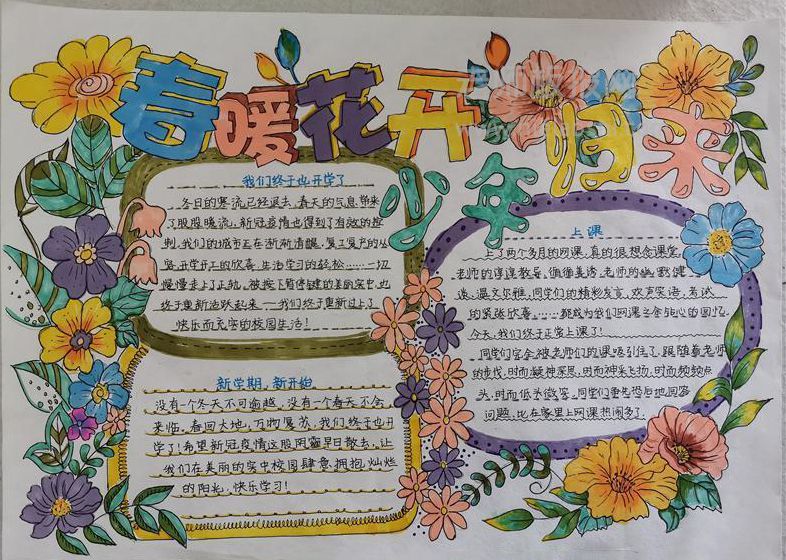 春暖花开
少年归来
我们终于也开学了
冬日的寒流已经退去,春天的气息带来
了股股暖流,新冠疫情也得到了有效的控
制,我们的城市正在渐渐清醒,复工复产的从
容,开学开工的欣喜,生活学习的轻松……一切
慢慢走上了正轨。被按了暂停键的美丽实中也
终于重新活跃起来——我们终于重新过上了
快乐而充实的校园生活!
新学期,新开始
没有一个冬天不可逾越,没有一个春天不会
来临。春回大地,万物复苏,我们终于也开
学了!希望新冠疫情这股阴霾早日散去,让
我们在美丽的实中校园肆意拥抱灿烂
的阳光,快乐学习!
上课
上了两个多月的网课,真的很想念课堂,
老师的谆谆教导,循循善诱,老师的幽默健
谈,温文尔雅,同学们的精彩发言,欢声笑语,考试
的紧张欣喜……都成为我们网课之余铭心的回忆。
今天,我们终于正常上课了!
同学们完全被老师们的课吸引住了,跟随着老师
的步伐,时而凝神深思,时而神采飞扬,时而频频点
头,时而低头微笑。同学们争先恐后地回答
问题,比在家里上网课热闹多了。